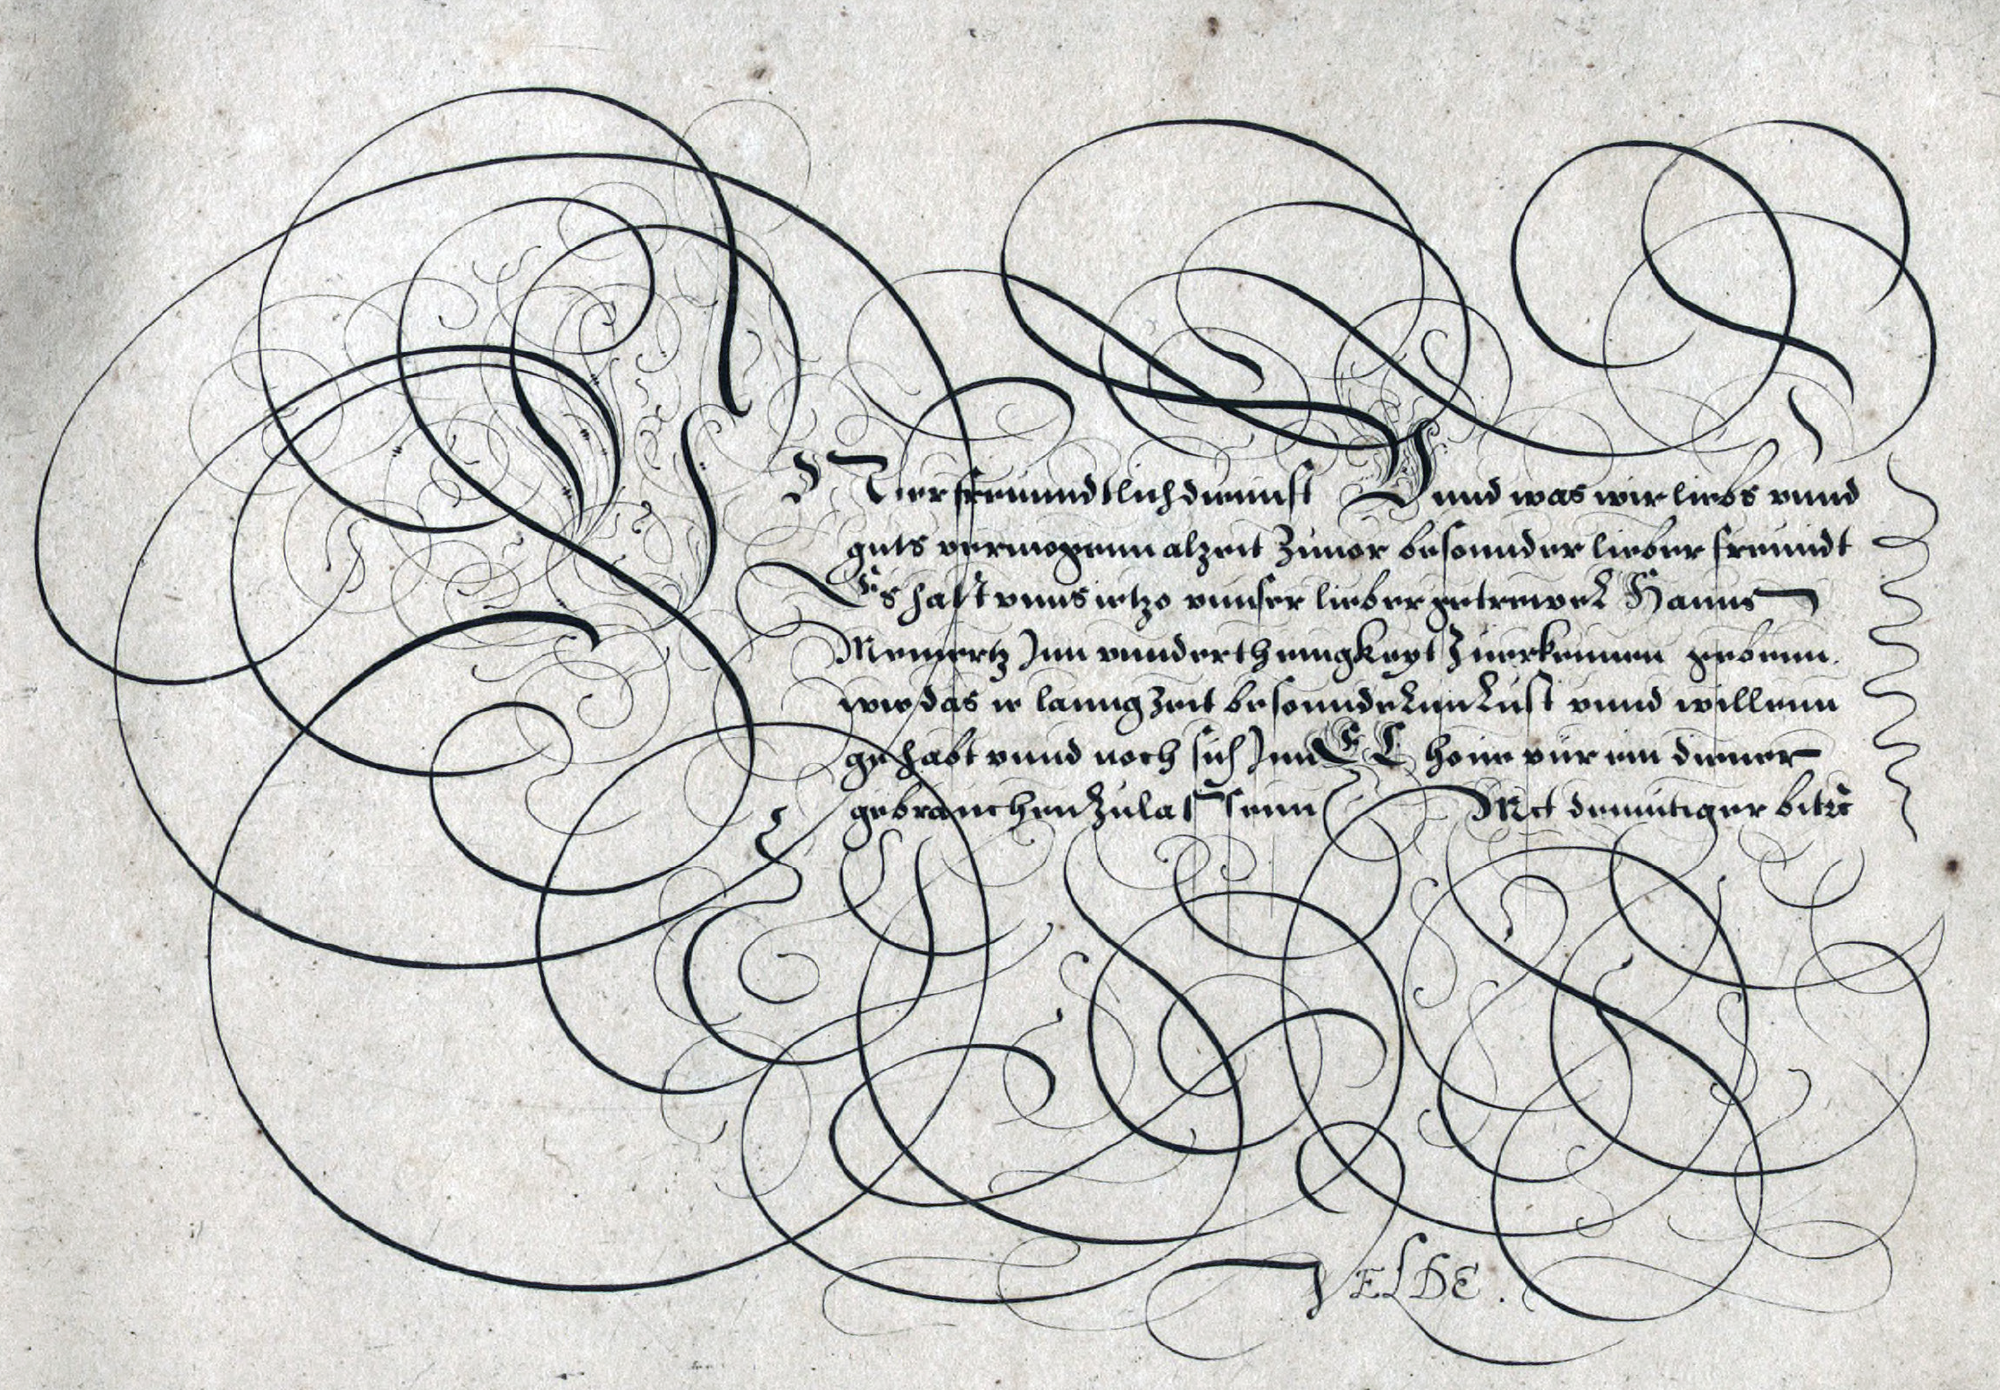 freuundtlich diennst Vnnd was wir liebs vnnd
guts vermogenn alzeit Zuuor besonnder lieber freundt
Es hatt vnns ietzo vnnser lieber getrewer Hanns
Meinertz Inn vnndertheinigkeyt Zuerkennen gebenn.
wie das er lanng Zeit besonnderenn Lust vnnd willenn
gehabt vnnd noch sich Inn E L houe vür ein diener
gebrauchen Zulassenn Mit demütiger bitt
VELDE.